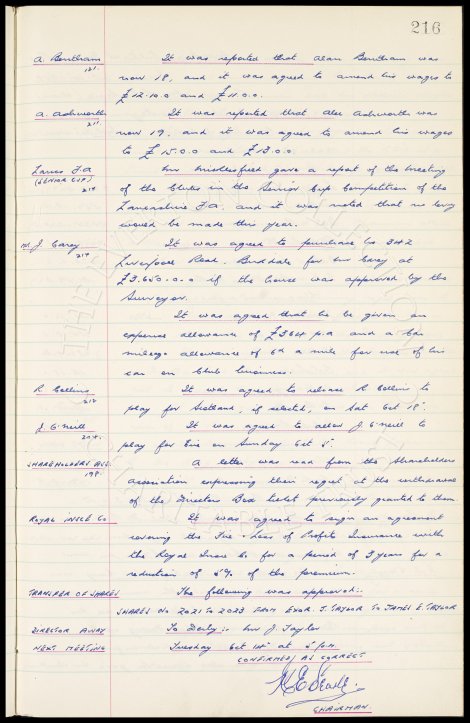 216
A. Bentham
181.
It was reported that Alan Bentham was
now 18, and it was agreed to amend his wages to
£12.10.0 and £11.0.0.
A. Ashworth
211.
It was reported that Alec Ashworth was
now 19, and it was agreed to amend his wages
to £15.0.0 and £13.0.0
Lancs F.A
(SENIOR CUP)
215
gave a report of the Meeting
of the Clubs in the Senior Cup Competition of the
Lancashire F.A. and it was noted that no levy
would be made this year.
J Carey
214
It was agreed to purchase No 342
Liverpool Road, Birkdale for Mr Carey at
£3.650.0.0 if the house was approved by the
Surveyor.
It was agreed that he be given an
expense allowance of £364 p.a and a Car
mileage allowance of 6d a mile for use of his
car on Club business.
R Collins
212
It was agreed to release R Collins to
play for Scotland, if selected, on Sat Oct 18th.
J. O'Neill
It was agreed to allow J. O'Neill to
play for Eire on Sunday Oct 5th.
SHAREHOLDERS ASS.
198.
A letter was read from the Shareholders
Association expressing their regret at the withdrawal
of the Directors Box ticket previously granted to them
ROYAL INSCE Co
It was agreed to sign an agreement
covering the Fire & Loss of Profits Insurance with
the Royal Insce Co for a period of 3 years for a
reduction of 5% of the premium.
TRANSFER OF SHARES
The following was approved:-
SHARES No 2021 to 2023 FROM EXOR. J. TAYLOR To JAMES E. TAYLOR
DIRECTOR AWAY
To Derby:- Mr J Taylor
NEXT MEETING
Tuesday Oct 1st at 5 p.m.
CONFIRMED AS CORRECT
CHAIRMAN.